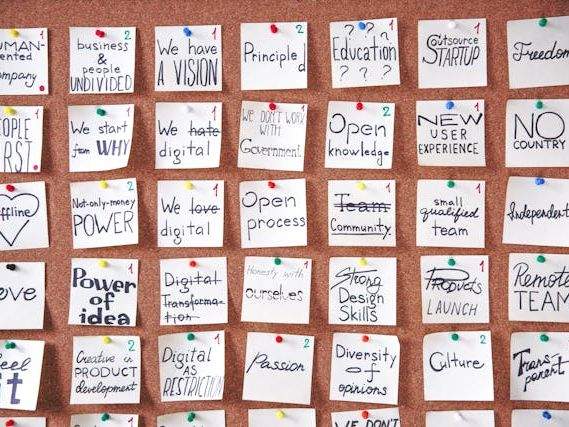 business
&
people
UNDIVIDED
2
We have
A VISION
1
Principled
2
Education
? ? ?
? ? ?
1
Outsource
STARTUP
1
Freedom
ompany
We start
from WHY
1
We hate
digital
1
WE DON'T WORK
WITH
Government
1
Open
knowledge
2
NEW
USER
EXPERIENCE
1
NO
COUNTRY
Not-only-money
POWER
2
We love
digital
1
Open
process
1
Team
Community
1
small
qualified
team
1
Independent
Power
of
idea
1
Digital
Transforma-
tion
1
Honesty with
ourselves
1
Strong
Design
Skills
2
Products
LAUNCH
1
Remote
TEAM
Creative in
PRODUCT
development
2
Digital
AS
RESTRICTION
1
Passion
2
Diversity
of
opinions
2
Culture
2
Trans
parent
WE DON'T